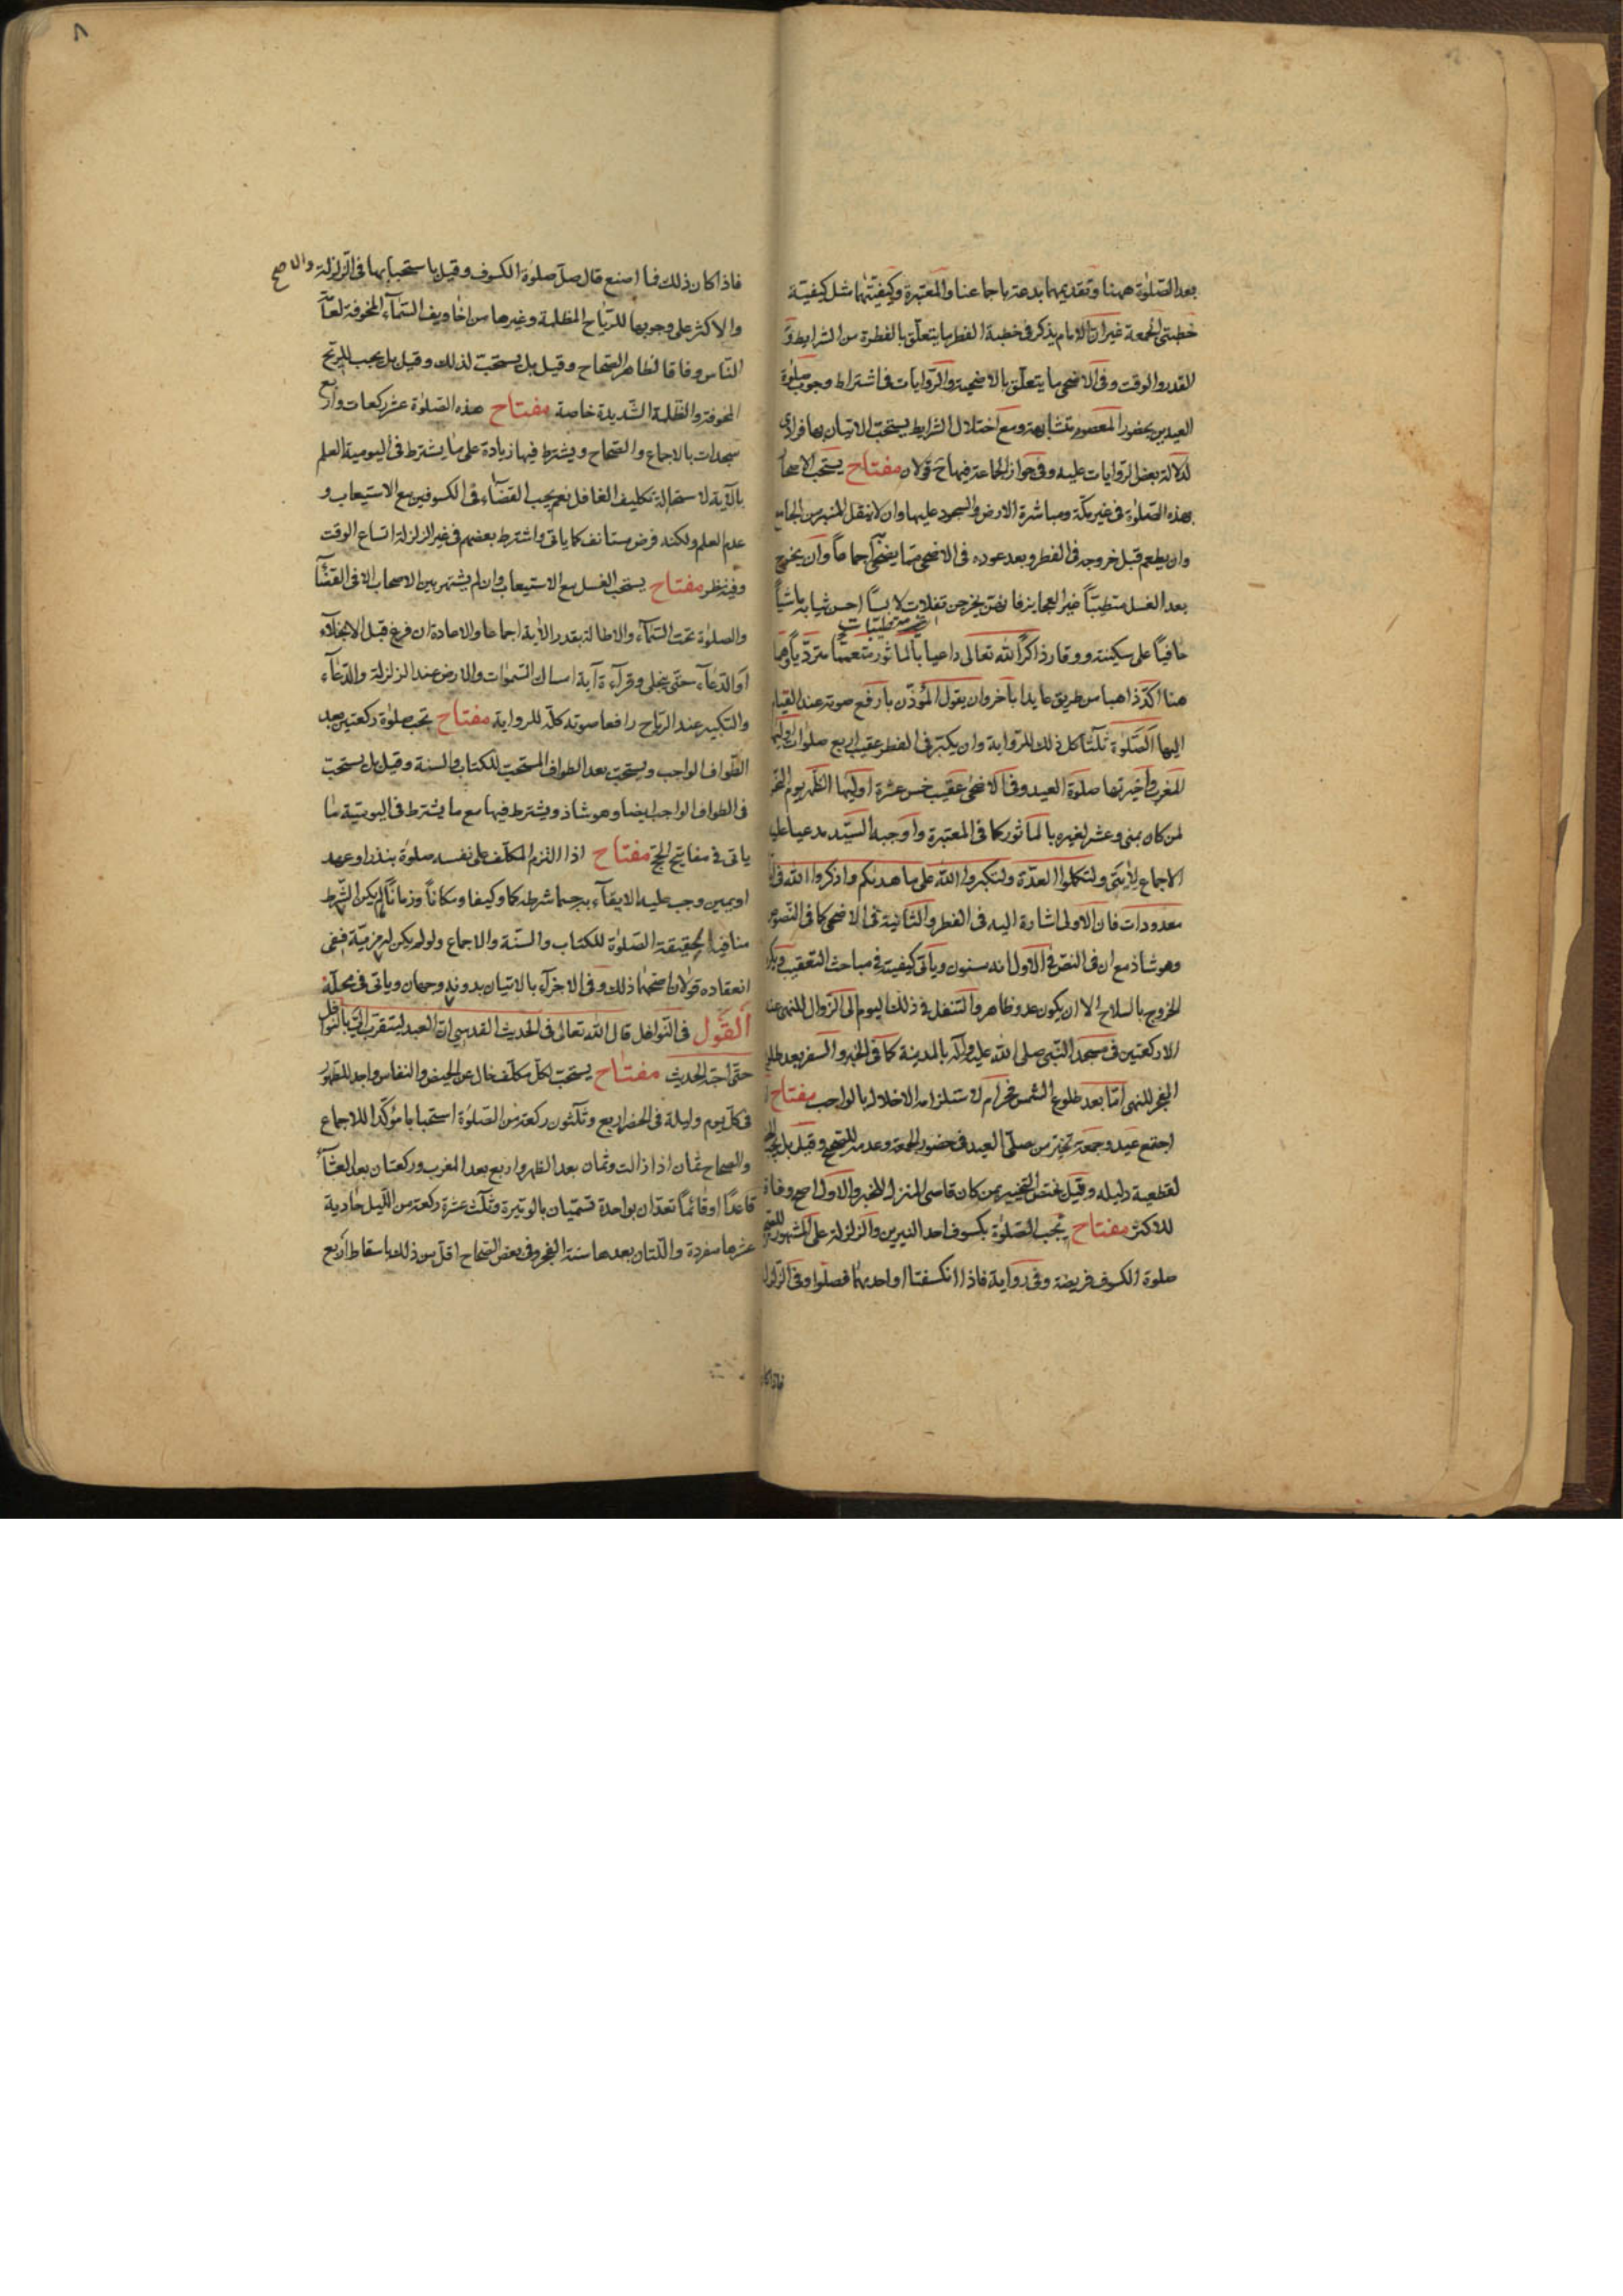 بعد الصّلوة ههنا وتقديمهما بدعة باجماعنا والمعتبرة وكيفيّتهما مثل كيفيّة
خطبتى الجمعة غير انّ الامام يذكر فى خطبة الفطر ما يتعلّق بالفطرة من الشرايط و
القدر والوقت وفى الاضحى ما يتعلّق بالاضحية والرّوايات فى اشتراط وجوب صلوة
العيدين بحضور المعصوم متشابهة ومع اختلال الشرايط يستحبّ الاتيان بها فرادى
لدلالة بعض الروايات عليه وفى جواز الجماعة فيها ح قولان مفتاح يستحبّ الاصحار
بهذه الصّلوة فى غير مكّة ومباشرة الارض فى السجود عليها وان لا ينقل المنبر من الجامع
وان يطعم قبل خروجه فى الفطر وبعد عوده فى الاضحى ممّا يضحّى اجماعاً وان يخرج
بعد الغسل متطيّباً غير العجايز فانهنّ يخرجن تفلات لابساً احسن ثيابه ماشياً
اى غير متطيّبات
حافياً على سكينة ووقار ذاكراً لله تعالى داعياً بالماثور متعمّماً متردّياً وهما
هنا اكد ذاهبا من طريق عايدا بآخر وان يقول المؤذّن بارفع صوته عند القيام
اليها الصّلوة ثلثاً كل ذلك للرّواية وان يكبّر فى الفطر عقيب اربع صلوات اوليها
المغرب واخيرتها صلوة العيد وفى الاضحى عقيب خمس عشرة اوليها الظّهر يوم النّحر
لمن كان بمنى وعشر لغيره بالماثور كما فى المعتبرة واوجبه السيّد مدعيا عليه
الاجماع لآيتى ولتكملوا العدّة ولتكبروا الله على ما هديكم واذكروا الله فى ايام
معدودات فان الاولى اشارة اليه فى الفطر والثانية فى الاضحى كما فى النصوص
وهو شاذ مع ان فى النصّ فى الاول انه مسنون وياتى كيفيته فى مباحث التعقيب ويكره
الخروج بالسلاح الا ان يكون عدو ظاهر والتنفل فى ذلك اليوم الى الزوال للنهى عنه
الا ركعتين فى مسجد النّبى صلى الله عليه وآله بالمدينة كما فى الخبر والسفر بعد طلوع
الفجر للنهى امّا بعد طلوع الشمس فحرام لاستلزامه الاخلال بالواجب مفتاح اذا
اجتمع عيد وجمعة تخيّر من صلّى العيد فى حضور الجمعة وعدمه للصّحيح وقيل بل يجب
لقطعية دليله وقيل يختصّ التخيير بمن كان قاصى المنزل للخبر والاول اصح وفاقا
للاكثر مفتاح تجب الصّلوة بكسوف احد النيرين والزلزلة على المشهور للصّحيح
صلوة الكسوف فريضة وفى رواية فاذا انكسفتا او احديهما فصلّوا وفى الزلزلة
فاذا كان
٨
فاذا كان ذلك فما اصنع قال صلّ صلوة الكسوف وقيل باستحبابها فى الزلزلة والاصح
والاكثر على وجوبها للرّياح المظلمة وغيرها من اخاويف السّمآء المخوفة لعامّة
النّاس وفاقا لظاهر الصّحاح وقيل بل يستحبّ لذلك وقيل بل يجب للريح
المخوفة والظّلمة الشّديدة خاصة مفتاح هذه الصّلوة عشر ركعات واربع
سجدات بالاجماع والصّحاح ويشترط فيها زيادة على ما يشترط فى اليومية العلم
بالآية لاستحالة تكليف الغافل نعم يجب القضاء فى الكسوفين مع الاستيعاب و
عدم العلم ولكنه فرض مستانف كما ياتى واشترط بعضهم فى غير الزلزلة اتساع الوقت
وفيه نظر مفتاح يستحب الغسل مع الاستيعاب وان لم يشتهر بين الاصحاب الا فى القضآء
والصلوة تحت السّمآء والاطالة بقدر الآية اجماعا والاعادة ان فرغ قبل الانجلاء
او الدّعآء حتّى ينجلى وقرآءة آية امساك السّموات والارض عند الزلزلة والدّعآء
والتكبير عند الرّياح رافعا صوته كلّه للرواية مفتاح تجب صلوة ركعتين بعد
الطّواف الواجب ويستحبّ بعد الطواف المستحبّ للكتاب والسنة وقيل بل يستحبّ
فى الطواف الواجب ايضا وهو شاذ ويشترط فيها مع ما يشترط فى اليوميّة ما
ياتى فى مفاتيح الحج مفتاح اذا التزم المكلّف على نفسه صلوة بنذر او عهد
او يمين وجب عليه الايفآء به حسبما شرطه كما وكيفا ومكاناً وزماناً لم يكن الشّرط
منافياً لحقيقة الصّلوة للكتاب والسنّة والاجماع ولو لم يكن له مزيّة ففى
انعقاده قولان اصحّهما ذلك وفى الاجزآء بالاتيان بدونه وجهان وياتى فى محلّه
القول فى النّوافل قال الله تعالى فى الحديث القدسى انّ العبد ليتقرّب الىّ بالنوافل
حتّى احبّه الحديث مفتاح يستحبّ لكلّ مكلّف خال عن الحيض والنفاس واجد للطّهور
فى كلّ يوم وليلة فى الحضر اربع وثلثون ركعة من الصّلوة استحبابا مؤكّدا للاجماع
والصحاح ثمان اذا زالت وثمان بعد الظهر واربع بعد المغرب وركعتان بعد العشآء
قاعداً او قائماً تعدّان بواحدة تسمّيان بالوتيرة وثلث عشرة ركعة من اللّيل حادية
عشرها مفردة واللّتان بعدها سنة الفجر وفى بعض الصّحاح اقلّ من ذلك باسقاط اربع